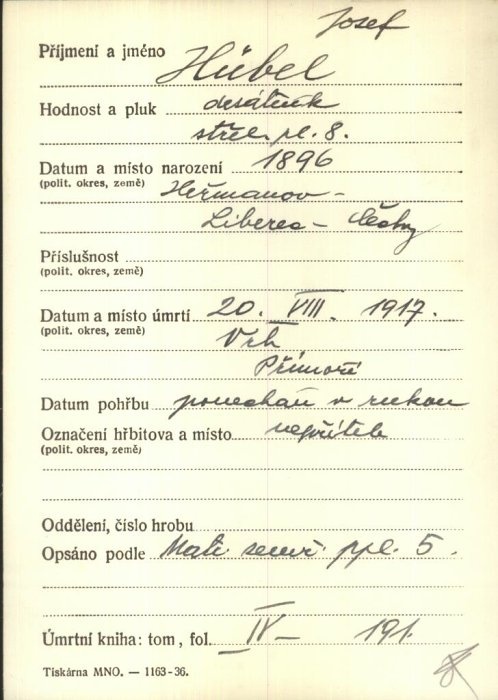 Josef
Příjmení a jméno Hübel
Hodnost a pluk desátník
střel. pl. 8.
Datum a místo narození 1896
(polit. okres, země) Heřmanov -
Liberec - Čechy
Příslušnost
(polit. okres, země)
Datum a místo úmrtí 20. VIII. 1917.
(polit. okres, země) Vrh
Přímoří
Datum pohřbu ponechán v rukou
Označení hřbitova a místo nepřítele
(polit. okres, země)
Oddělení, číslo hrobu
Opsáno podle Matr. ppl. 5.
Úmrtní kniha: tom, fol. IV - 191.
Tiskárna MNO. — 1163-36.